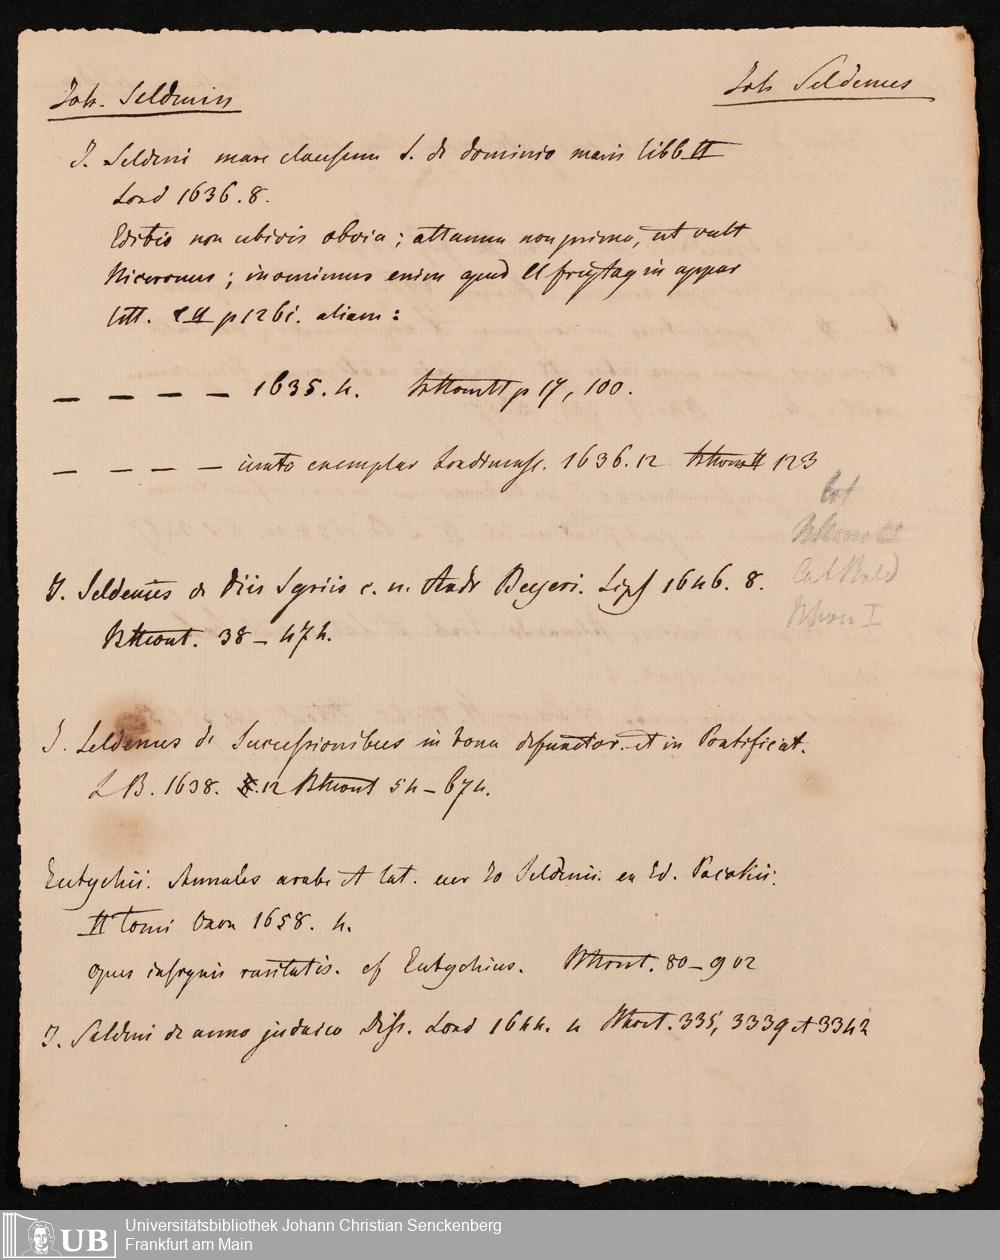 Joh. Seldenus
Joh Seldenus
J. Seldeni mare clausum s. de dominio maris libb II
Lond 1636. 8.
Editio non ubivis obvia; attamen non prima, ut vult
Niceronus; invenimus enim apud Cl freytag in appar
litt. p 1261. aliam:
— — — — 1635. 4. p 17, 100.
— — — — juxta exemplar Londinense. 1636. 12 123
Cat
J. Seldenus de Diis Syriis c. n. Andr Beyeri. Lips 1646. 8.
38 – 474.
J. Seldenus de Successionibus in bona defunctor. et in Pontificat.
LB. 1638. 8. 12 54 – 674.
Eutychii. Annales arabe et lat. Jo Seldenii. ex Ed. Pocokii.
II Tomi Oxon 1658. 4.
opus insignis raritatis. cf Eutychius. 80 – 902
J. Seldeni de anno judaico Diss. Lond 1644. 4 335, 3339 et 3342
Universitätsbibliothek Johann Christian Senckenberg
Frankfurt am Main
UB